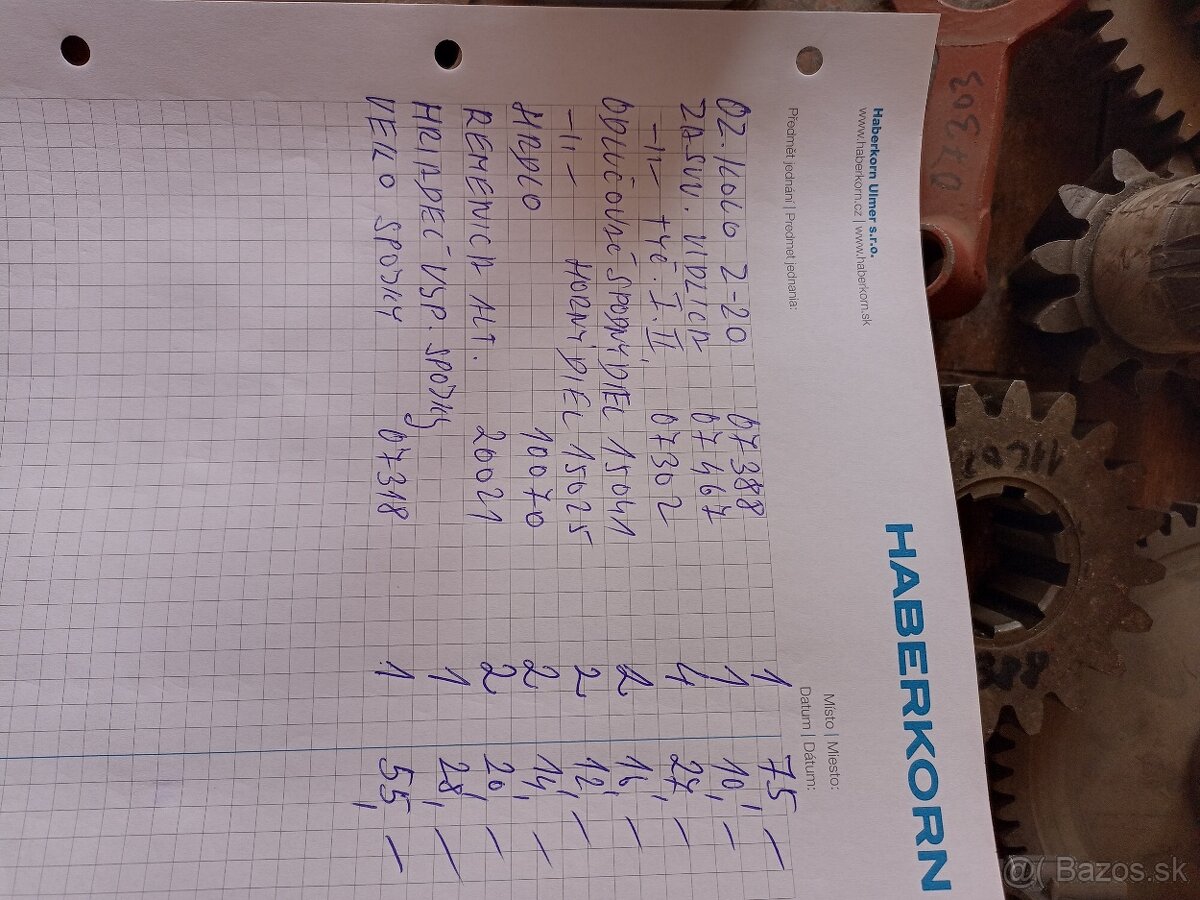 HABERKORN
Haberkorn Ulmer s.r.o.
www.haberkorn.cz | www.haberkorn.sk
Místo | Miesto:
Předmět jednání | Predmet jednania:
Datum | Dátum:
OZ. KOLO Z-20 67388 1 75,-
ZASUV. VIDLICA 67467 1 10,-
-11- +4č. I. II 67302 4 27,-
ODLUČOVAČ SPODNÝ DIEL 15041 2 16,-
-11- HORNÝ DIEL 15025 2 12,-
HRDLO 10070 2 14,-
REMENICA ALT. 20021 2 20,-
HRIADEĽ VSP. SPOJKY 1 28,-
VEKO SPOJKY 67318 1 55,-
67303
Bazos.sk